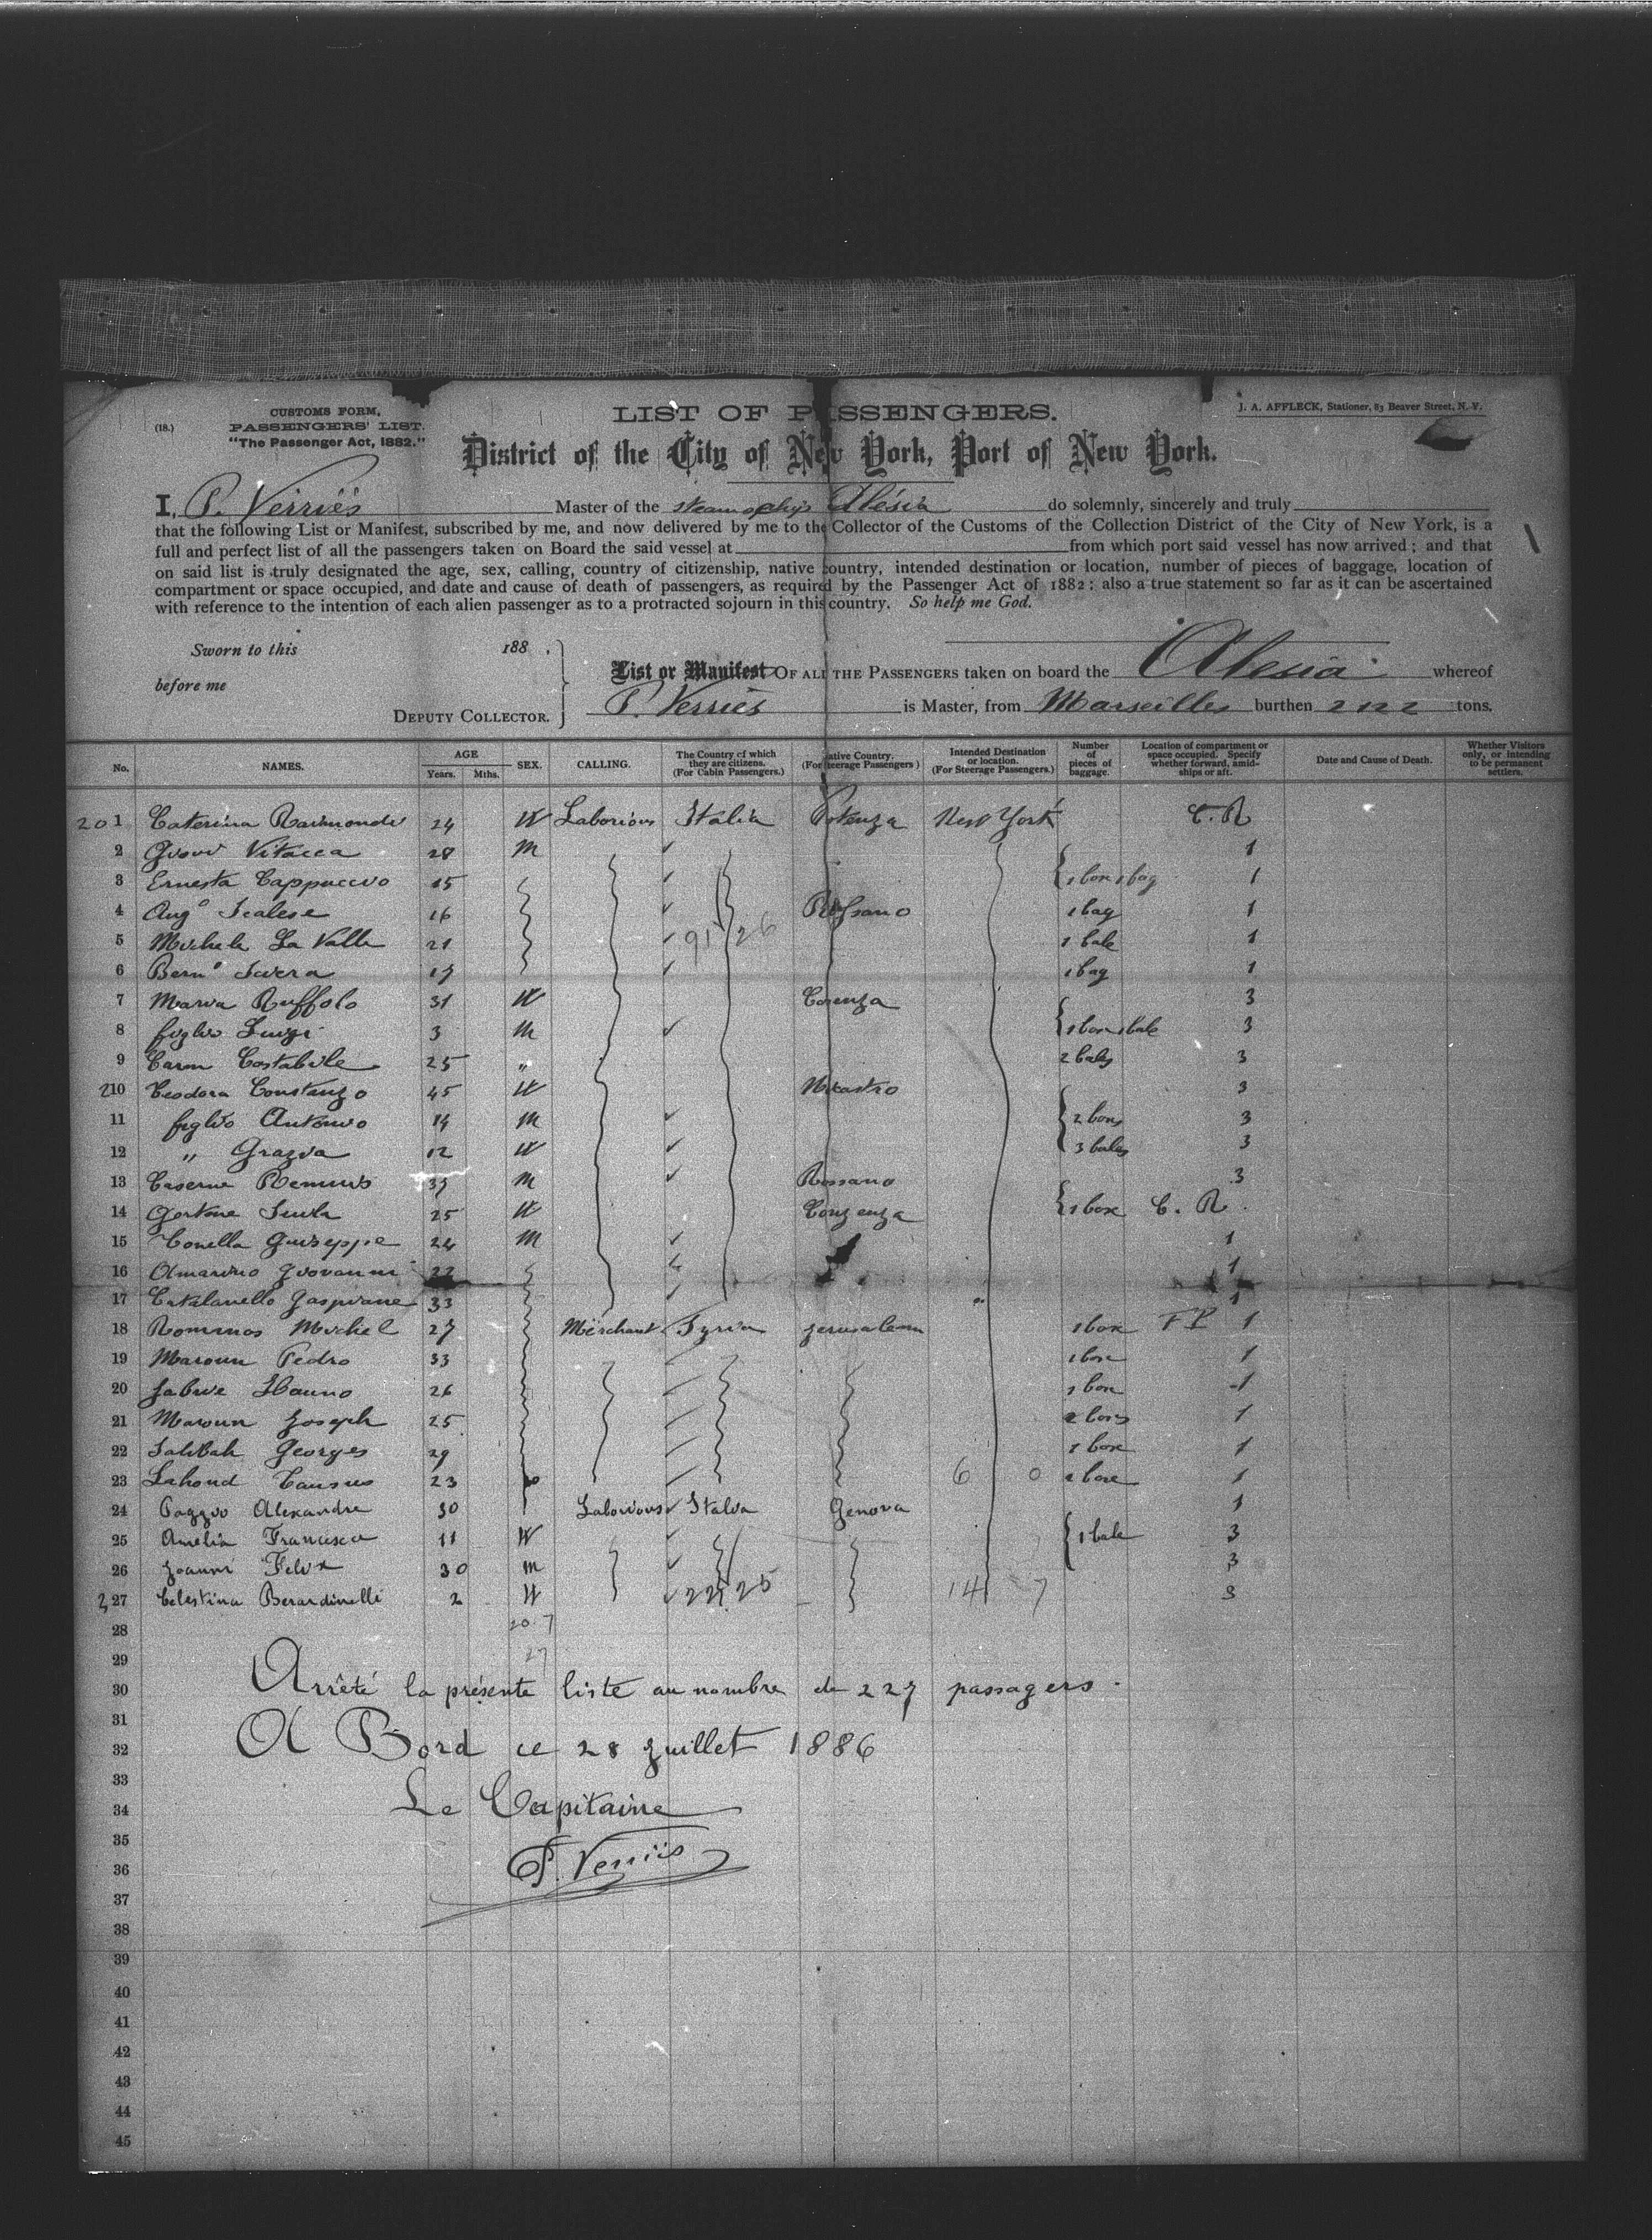 (18.)
CUSTOMS FORM.
PASSENGERS' LIST.
"The Passenger Act, 1882."
LIST OF PASSENGERS.
J. A. AFFLECK, Stationer, 83 Beaver Street, N. Y.
District of the City of New York, Port of New York.
I, P. Verriès Master of the steamship Alésia do solemnly, sincerely and truly
that the following List or Manifest, subscribed by me, and now delivered by me to the Collector of the Customs of the Collection District of the City of New York, is a
full and perfect list of all the passengers taken on Board the said vessel at from which port said vessel has now arrived; and that
on said list is truly designated the age, sex, calling, country of citizenship, native country, intended destination or location, number of pieces of baggage, location of
compartment or space occupied, and date and cause of death of passengers, as required by the Passenger Act of 1882; also a true statement so far as it can be ascertained
with reference to the intention of each alien passenger as to a protracted sojourn in this country. So help me God.
Sworn to this 188 .
before me
DEPUTY COLLECTOR.
List or Manifest OF ALL THE PASSENGERS taken on board the Alesia whereof
P. Verriès is Master, from Marseilles burthen 2122 tons.
No. NAMES. AGE Years. Mths. SEX. CALLING. The Country of which they are citizens. (For Cabin Passengers.) Native Country. (For Steerage Passengers) Intended Destination or location. (For Steerage Passengers.) Number of pieces of baggage. Location of compartment or space occupied. Specify whether forward, amidships or aft. Date and Cause of Death. Whether Visitors only, or intending to be permanent settlers.
201 Caterina Raimondi 24 W Laborious Italia Potenza New York C. R
2 Giovi Vitacca 28 M 1
3 Ernesta Cappuccio 15 1 box 1 bag 1
4 Augo Scalese 16 Rossano 1 bag 1
5 Michele La Valle 21 91 26 1 bale 1
6 Berno 17 1 bag 1
7 Maria Ruffolo 31 W Cosenza 3
8 figlio Luigi 3 M 1 box 1 bale 3
9 Carm Costabile 25 " 2 bales 3
210 Teodora Constanzo 45 W Nicastro 3
11 figlio Antonio 14 M 2 boxs 3
12 " Grazia 12 W 3 bales 3
13 Caserne 37 M Rossano 3
14 25 W Conzenza 1 box C. R.
15 Conella Guiseppe 24 M 1
16 Amarino Giovanni 22 1
17 Catalanello Gaspiane 33 1
18 Rominos Michel 27 Merchant Syria Jerusalem 1 box F P 1
19 Maroun Pedro 33 1 box 1
20 Jabrie Hanno 26 1 box 1
21 Maroun Joseph 25 2 boxs 1
22 Salibah Georges 29 1 box 1
23 Lahoud 23 6 0 1
24 Poggio Alexandre 30 Laborious Italia Genova 1
25 Amelia Francisca 11 W 1 bale 3
26 Joanni Felix 30 M 3
227 Celestina Berardinelli 2 W 22 25 141 7 3
28 20 7
29 27
30 Arrêté la présente liste au nombre de 227 passagers.
31
32 A Bord ce 28 Juillet 1886
33
34 Le Capitaine
35
36 P. Verriès
37
38
39
40
41
42
43
44
45